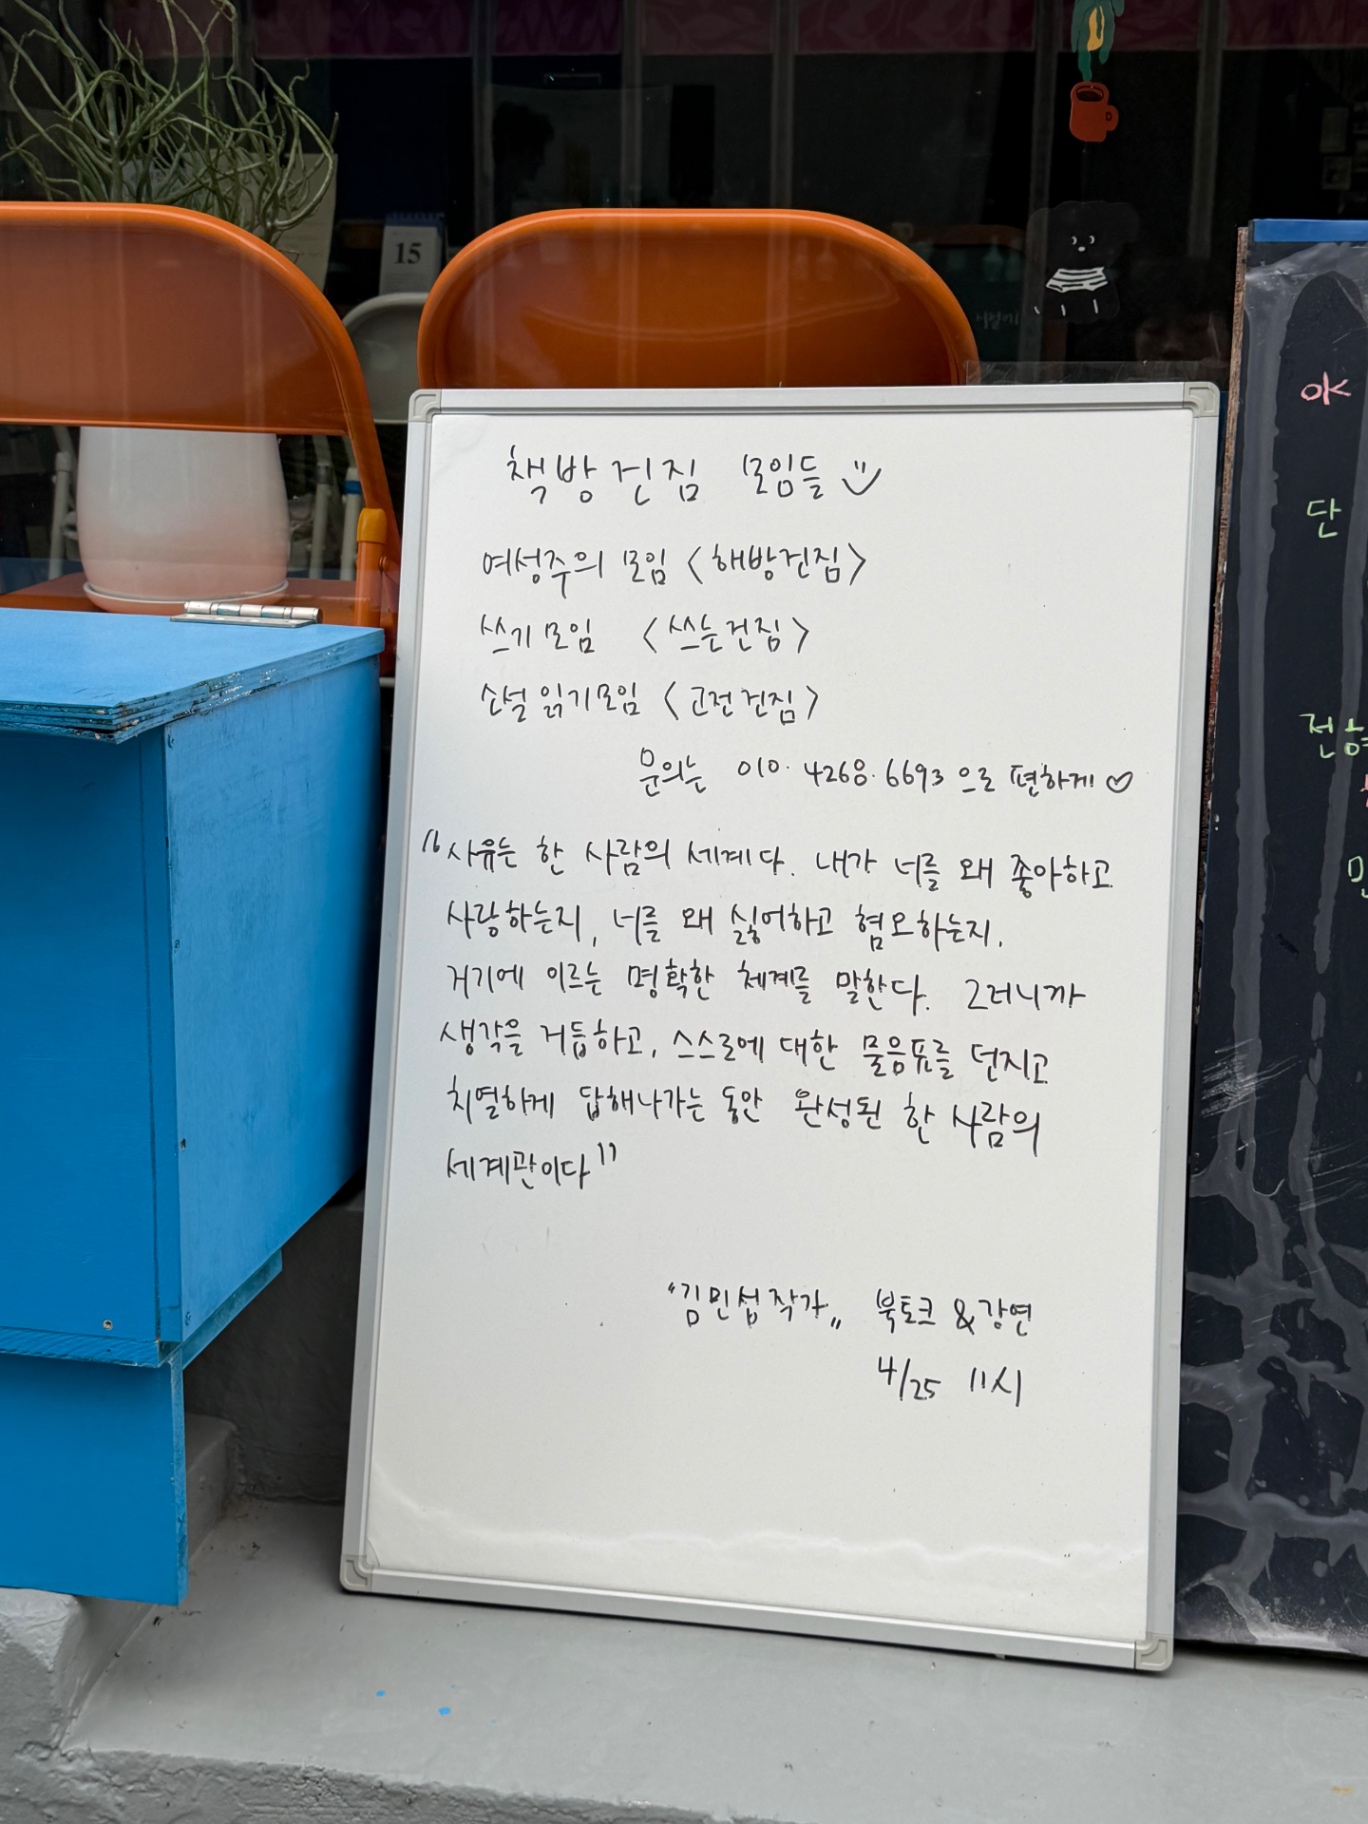 책방건짐 모임들
여성주의 모임 <해방건짐>
쓰기모임 <쓰는건짐>
소설 읽기모임 <고전건짐>
문의는 010. 4268. 6693 으로 편하게♡
"사유는 한 사람의 세계다. 내가 너를 왜 좋아하고
사랑하는지, 너를 왜 싫어하고 혐오하는지.
거기에 이르는 명확한 체계를 말한다. 그러니까
생각을 거듭하고, 스스로에 대한 물음표를 던지고
치열하게 답해나가는 동안 완성된 한 사람의
세계관이다"
"김민섭작가" 북토크 & 강연
4/25 11시
15
OK
단